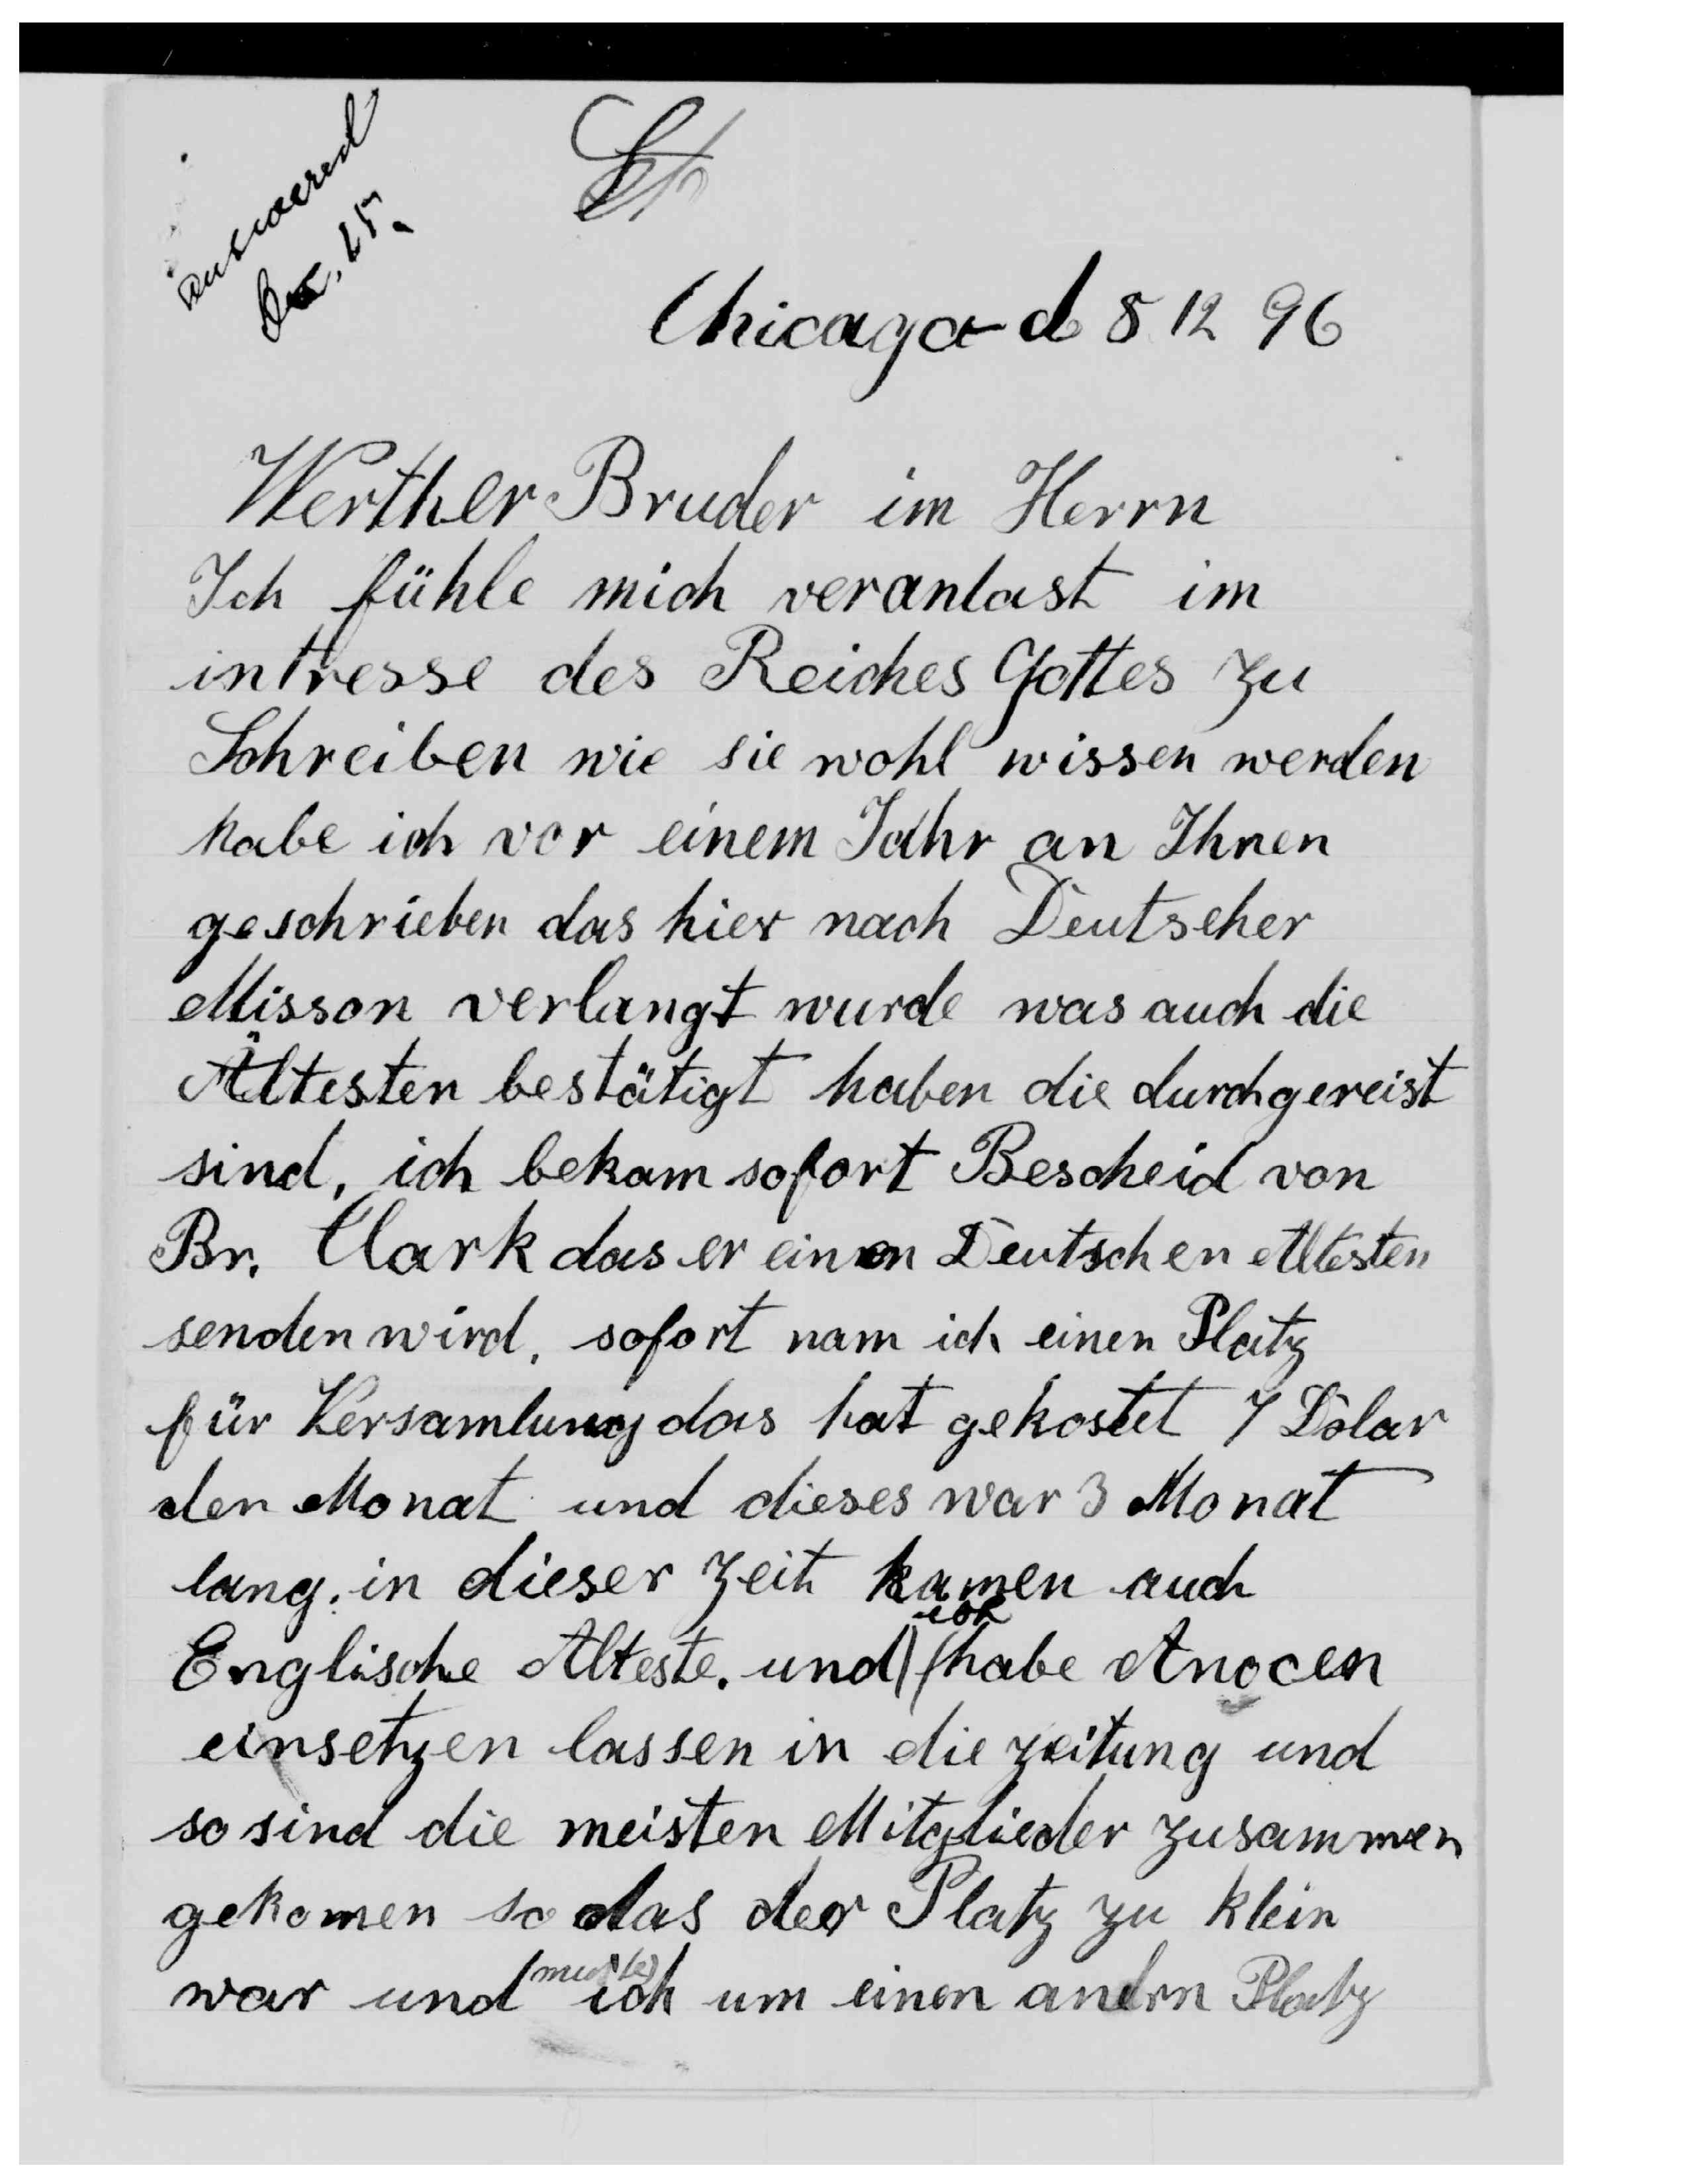 answered
Dec. 15.
Chicago d 8 12 96
Werther Bruder im Herrn
Ich fühle mich veranlast im
intresse des Reiches Gottes zu
Schreiben wie sie wohl wissen werden
habe ich vor einem Jahr an Ihnen
geschrieben das hier nach Deutscher
Misson verlangt wurde was auch die
Ältesten bestätigt haben die durchgereist
sind, ich bekam sofort Bescheid von
Br. Clark das er einen Deutschen Altesten
senden wird, sofort nam ich einen Platz
für Versamlung das hat gekostet 7 Dolar
den Monat und dieses war 3 Monat
lang. in dieser Zeit kamen auch
Englische Alteste. und ich habe Anocen
einsetzen lassen in die zeitung und
so sind die meisten Mitglieder zusammen
gekomen so das der Platz zu klein
war und muste ich um einen andrn Platz